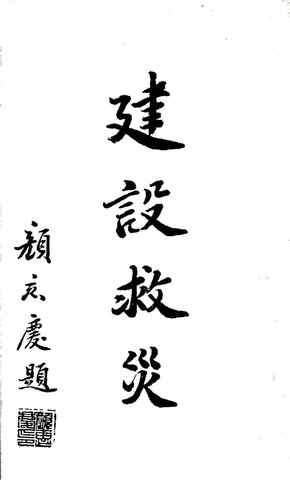 建設救災
顏惠慶題